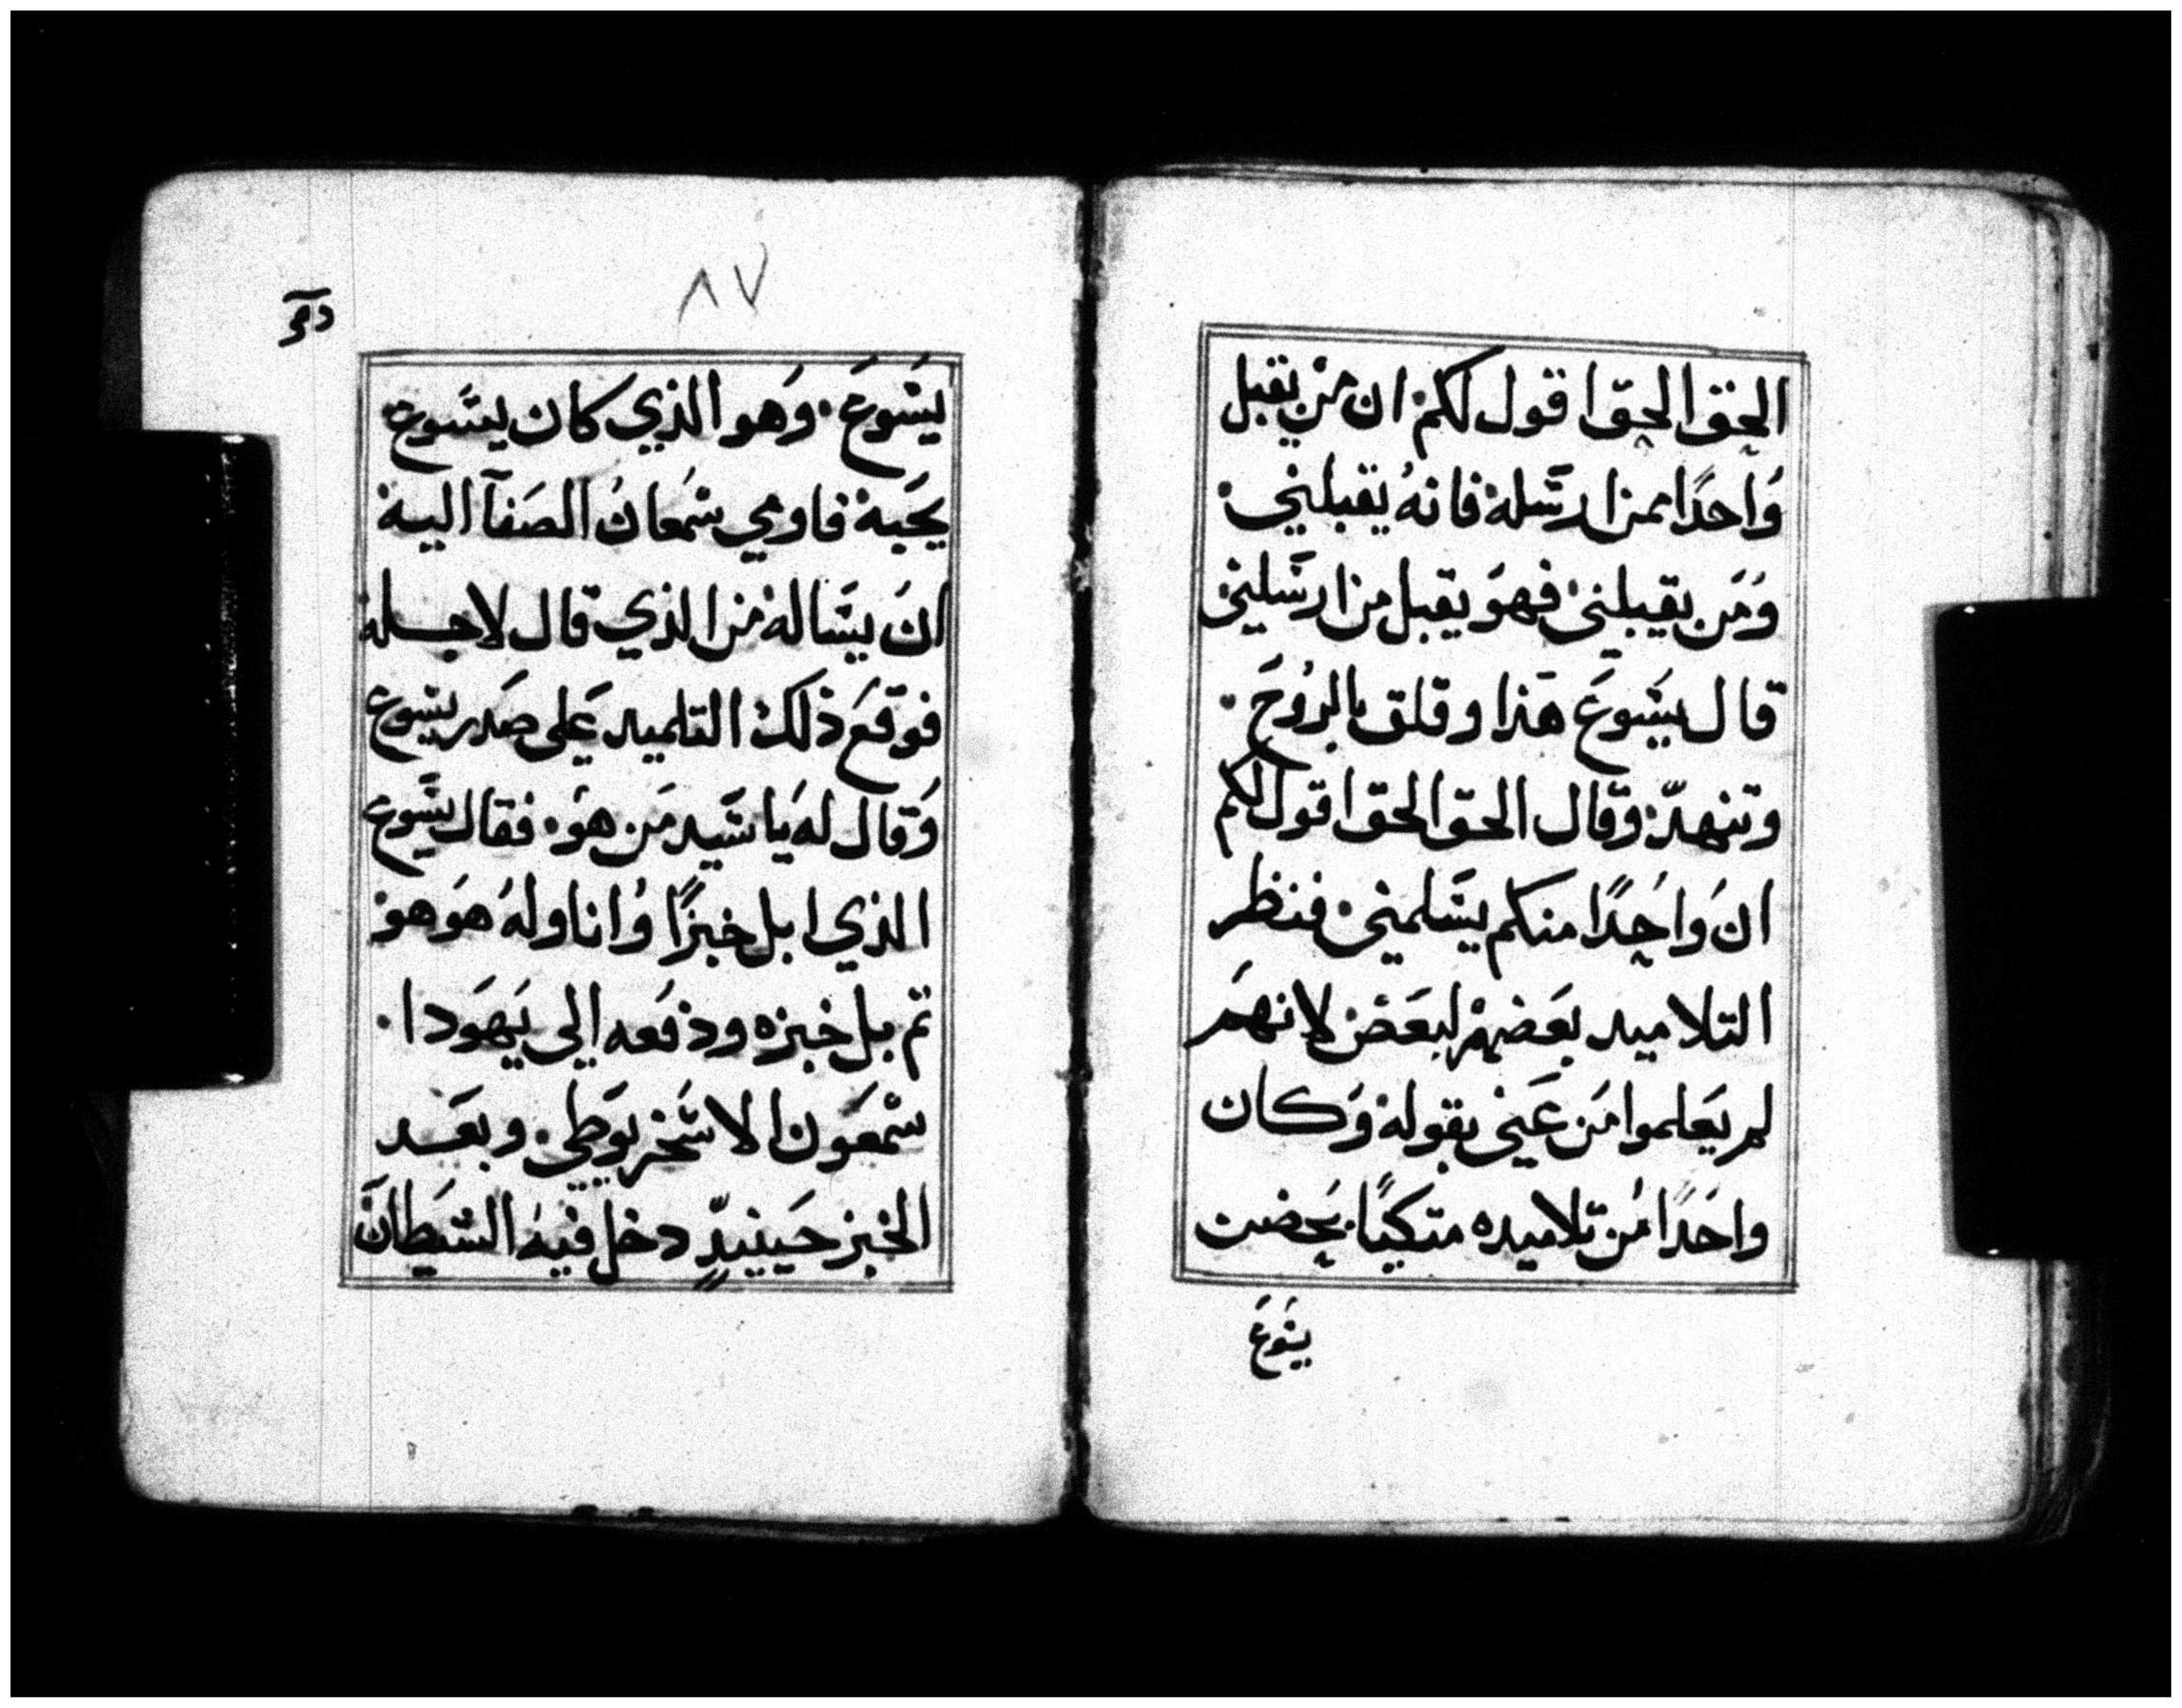 الحق الحق اقول لكم. ان من يقبل
واحدًا ممن ارسله فانه يقبلني.
ومن يقبلني فهو يقبل من ارسلني
قال يسوع هذا وقلق بالروح.
وتنهد وقال الحق الحق اقول لكم
ان واحدًا منكم يسلمني. فنظر
التلاميد بعضهم لبعض لانهم
لم يعلموا من عني بقوله وكان
واحدًا من تلاميده متكيًا. بحضن
يسوع
٨٧
يسوع. وهو الذي كان يسوع
يحبه فاومي سمعان الصفآ اليه
ان يساله من الذي قال لاجله
فوقع ذلك التلميد علي صدر يسوع
وقال له يا سيد من هو. فقال يسوع
الذي ابل خبزًا واناوله هو هو
تم بل خبزه ودفعه الي يهودا.
سمعون الاسخريوطي. وبعد
الخبز حينيدٍ دخل فيه الشيطان